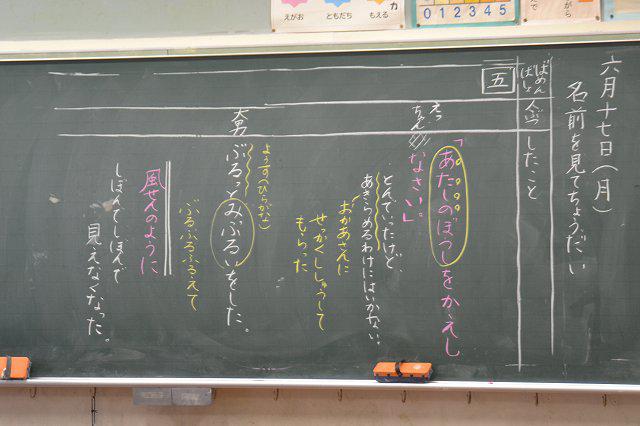 えがお
ともだち
もえる
力
0 1 2 3 4 5
六月十七日(月)
名前を見てちょうだい
ばめん
ばしょ
人ぶつ
したこと
五
えっちゃん
「あたしのぼうしをかえし
なさい。」
とんでいったけど、
あきらめるわけにはいかない。
おかあさんに
せっかくししゅうして
もらった
大男
ようす(ひらがな)
ぶるっとみぶるいをした。
ぶるぶるふるえて
風せんのように
しぼんでしぼんで
見えなくなった。